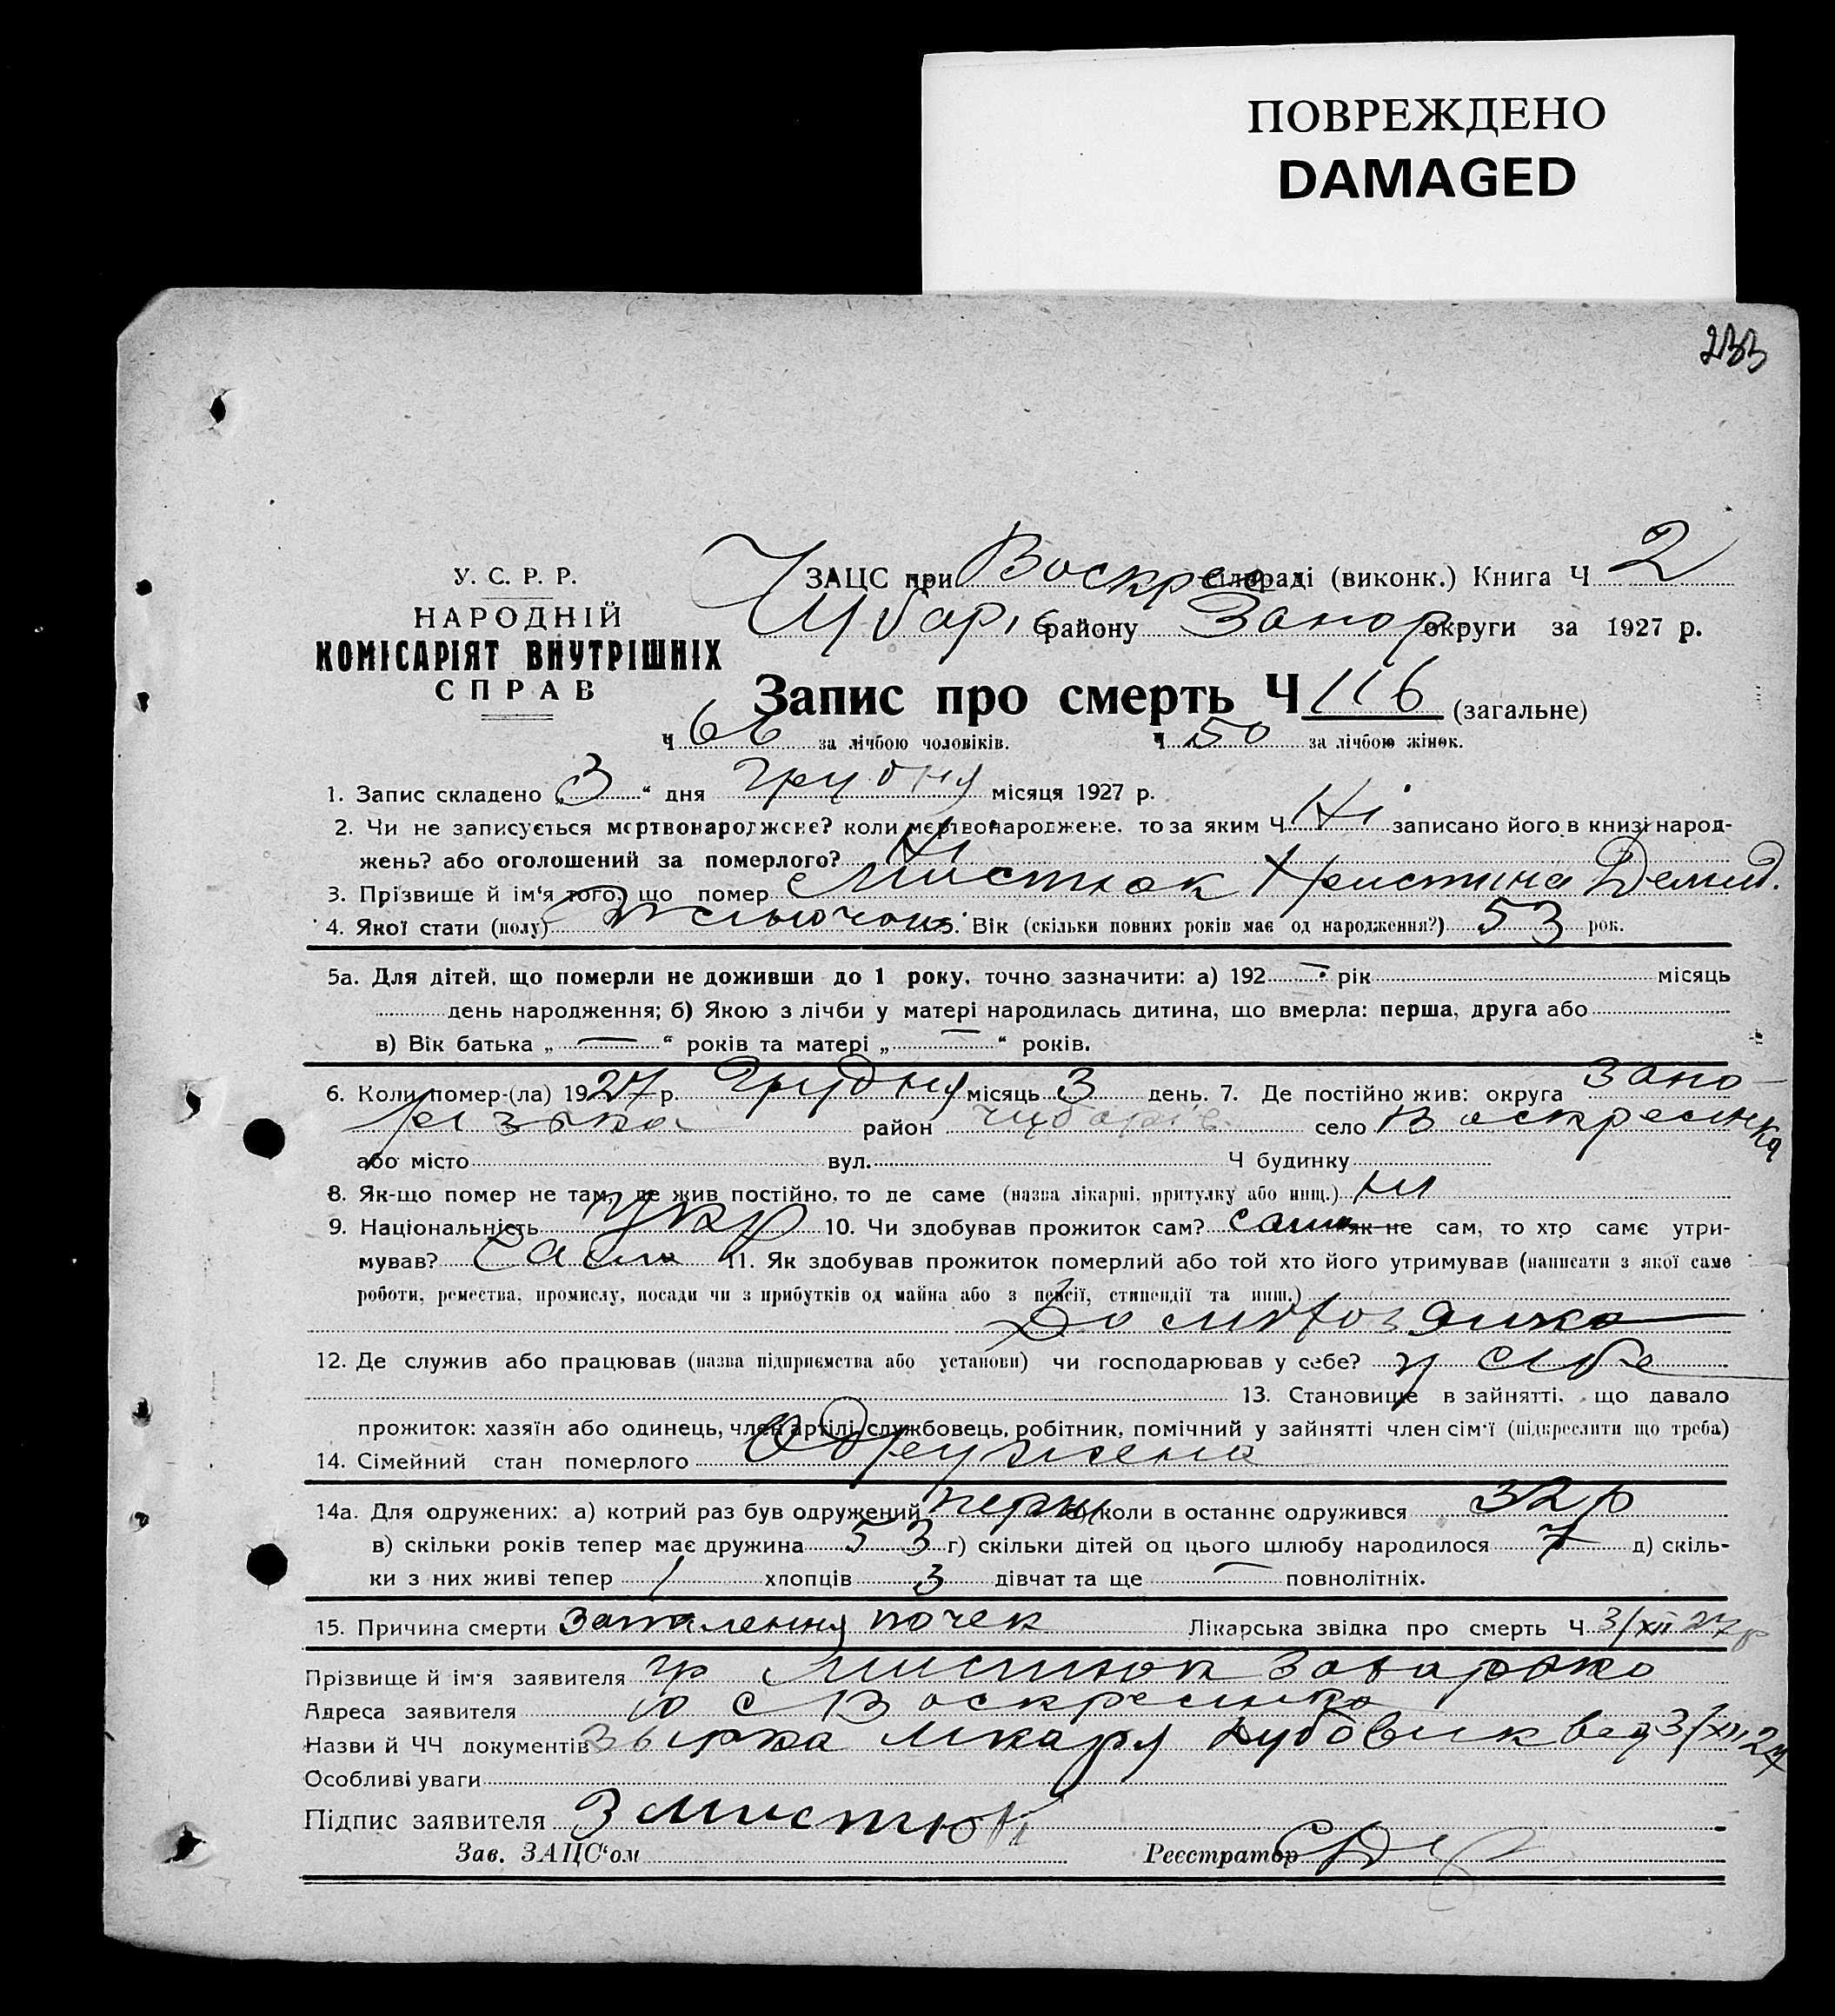 ПОВРЕЖДЕНО
DAMAGED
233
У. С. Р. Р.
НАРОДНІЙ
КОМІСАРІЯТ ВНУТРІШНІХ
СПРАВ
ЗАЦС при Воскрес сільраді (виконк.) Книга Ч 2
Чубарів району Запор округи за 1927 р.
Запис про смерть Ч 116 (загальне)
Ч 66 за лічбою чоловіків. Ч 50 за лічбою жінок.
1. Запис складено „3“ дня грудня місяця 1927 р.
2. Чи не записується мертвонароджене? коли мертвонароджене, то за яким Ч Ні записано його в книзі народ-
жень? або оголошений за померлого? Ні
3. Прізвище й ім'я того, що помер Мистюк Христина Демид.
4. Якої стати (полу) жіночого. Вік (скільки повних років має од народження?) 53 рок.
5а. Для дітей, що померли не доживши до 1 року, точно зазначити: а) 192 — рік місяць
день народження; б) Якою з лічби у матері народилась дитина, що вмерла: перша, друга або
в) Вік батька „ — “ років та матері „ — “ років.
6. Коли помер-(ла) 1927 р. Грудня місяць 3 день. 7. Де постійно жив: округа Запо-
різька район Чубарів. село Воскресенка
або місто вул. Ч будинку
8. Як-що помер не там, де жив постійно, то де саме (назва лікарні, притулку або инщ.) Ні
9. Національність Укр 10. Чи здобував прожиток сам? сама як не сам, то хто саме утри-
мував? Сама 11. Як здобував прожиток померлий або той хто його утримував (написати з якої саме
роботи, ремества, промислу, посади чи з прибутків од майна або з пенсії, стипендії та инш.)
Домохозяйка
12. Де служив або працював (назва підприємства або установи) чи господарював у себе? у себе
13. Становище в зайнятті, що давало
прожиток: хазяїн або одинець, член артілі, службовець, робітник, помічний у зайнятті член сім'ї (підкреслити що треба)
14. Сімейний стан померлого Одружена
14а. Для одружених: а) котрий раз був одружений перш б) коли в останнє одружився 32 р
в) скільки років тепер має дружина 53 г) скільки дітей од цього шлюбу народилося 7 д) скіль-
ки з них живі тепер 1 хлопців 3 дівчат та ще — повнолітніх.
15. Причина смерти Запалення почек Лікарська звідка про смерть Ч 3/XII 27 р
Прізвище й ім'я заявителя гр Мистюк
Адреса заявителя с Воскресенка
Назви й ЧЧ документів лікаря Дубовик від 3/XII 27
Особливі уваги
Підпис заявителя З Мистюк
Зав. ЗАЦС'ом Реєстратор